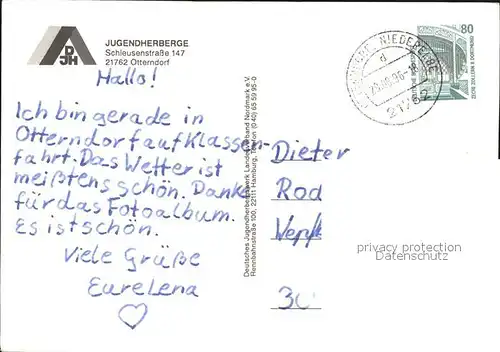 JUGENDHERBERGE
Schleusenstraße 147
21762 Otterndorf
DJH
Hallo!
Ich bin gerade in
Otterndorf auf Klassen-
fahrt. Das Wetter ist
meißtens schön. Danke
für das Fotoalbum.
Es ist schön.
Viele Grüße
Eure Lena
Deutsches Jugendherbergswerk Landesverband Nordmark e.V.
Rennbahnstraße 100, 22111 Hamburg, Telefon (0 40) 65 59 95-0
80
NIEDERELBE
d
21762
Dieter
Rod
30
privacy protection
Datenschutz